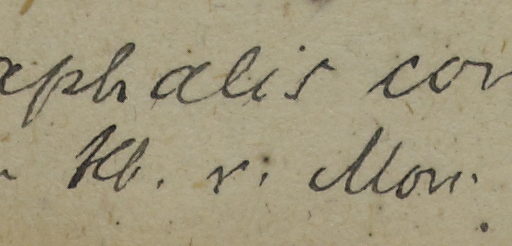 aphalis con
Hb. v. Mon.